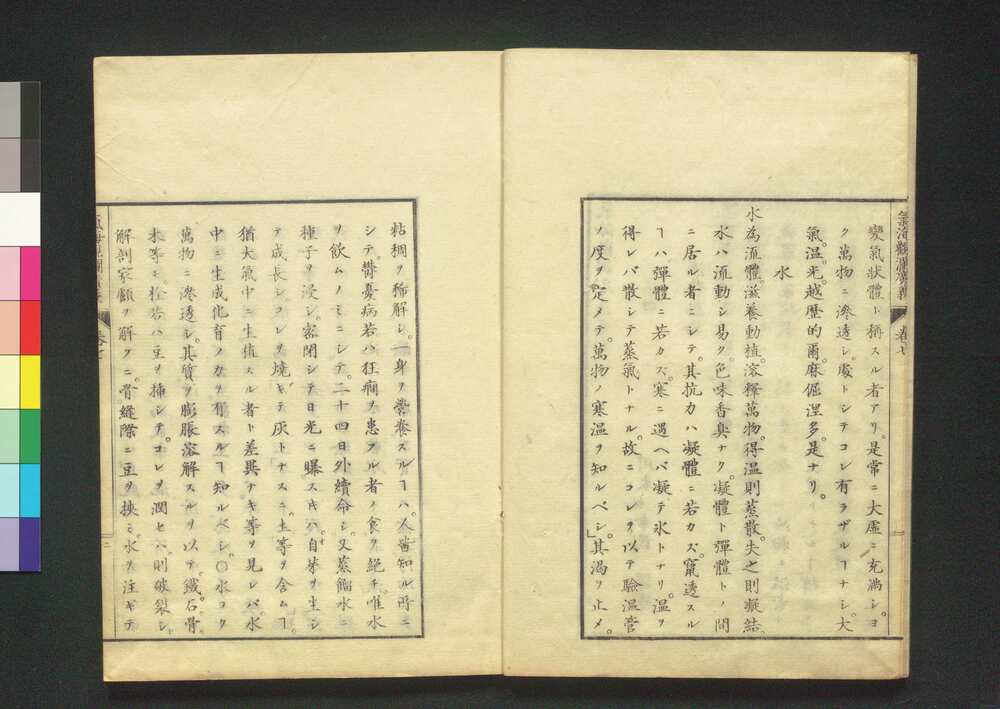 氣海觀瀾廣義 卷七
變氣狀體ト稱スル者アリ。是常ニ大虛ニ充滿シ。ヨ
ク萬物ニ滲透シ。處トシテコレ有ラザルヿナシ。大
氣。温。光。越歷的爾。麻倔涅多。是ナリ。
水
水為流體。滋養動植。溶釋萬物。得温則蒸散。失之則凝結。
水ハ流動シ易ク。色味香臭ナク。凝體ト彈體トノ間
ニ居ル者ニシテ。其抗力ハ凝體ニ若カズ。竄透スル
ヿハ彈體ニ若カズ。寒ニ遇ヘバ凝テ氷トナリ。温ヲ
得レバ散シテ蒸氣トナル。故ニコレヲ以テ驗温管
ノ度ヲ定メテ。萬物ノ寒温ヲ知ルベシ。」其渴ヲ止メ。
粘稠ヲ稀解シ。一身ヲ營養スルヿハ。人皆知ル所ニ
シテ。鬱憂病若ハ狂癎ヲ患フル者ノ食ヲ絕チ。唯水
ヲ飲ムノミニシテ。二十四日外續命シ。又蒸餾水ニ
種子ヲ浸シ。密閉シテ日光ニ曝スキハ。自芽ヲ生シ
テ成長シ。コレヲ燒キテ灰トナスニ。土等ヲ含ムヿ。
猶大氣中ニ生殖スル者ト差異ナキ等ヲ見レバ。水
中ニ生成化育ノ力ヲ有スルヿ知ルベシ。〇水ヨク
萬物ニ滲透シ。其質ヲ膨脹溶解スルヲ以テ。鐵石骨
木等ニ。栓若ハ豆ヲ插シテコレヲ潤セバ。則破裂シ。
解剖家顱ヲ解クニ。骨縫際ニ豆ヲ挾ミ。水ヲ注ギテ
卷七
二